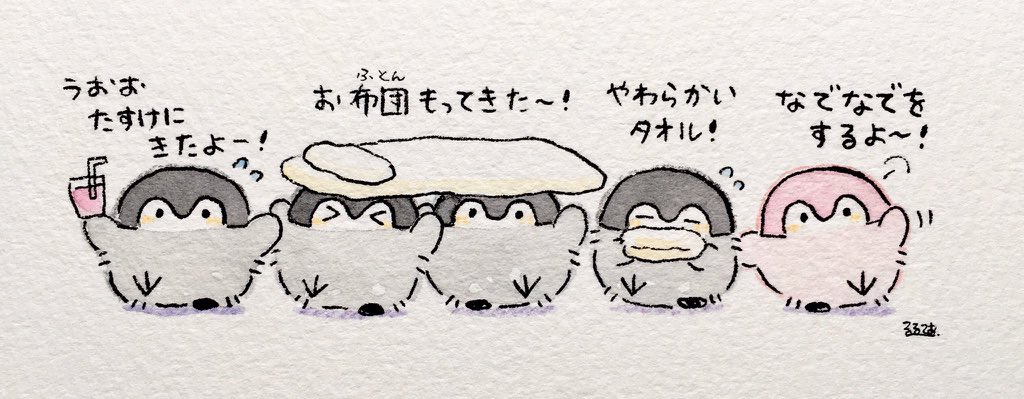 うおお
たすけに
きたよー!
ふとん
お布団もってきた〜!
やわらかい
タオル!
なでなでを
するよ〜!
るるてあ